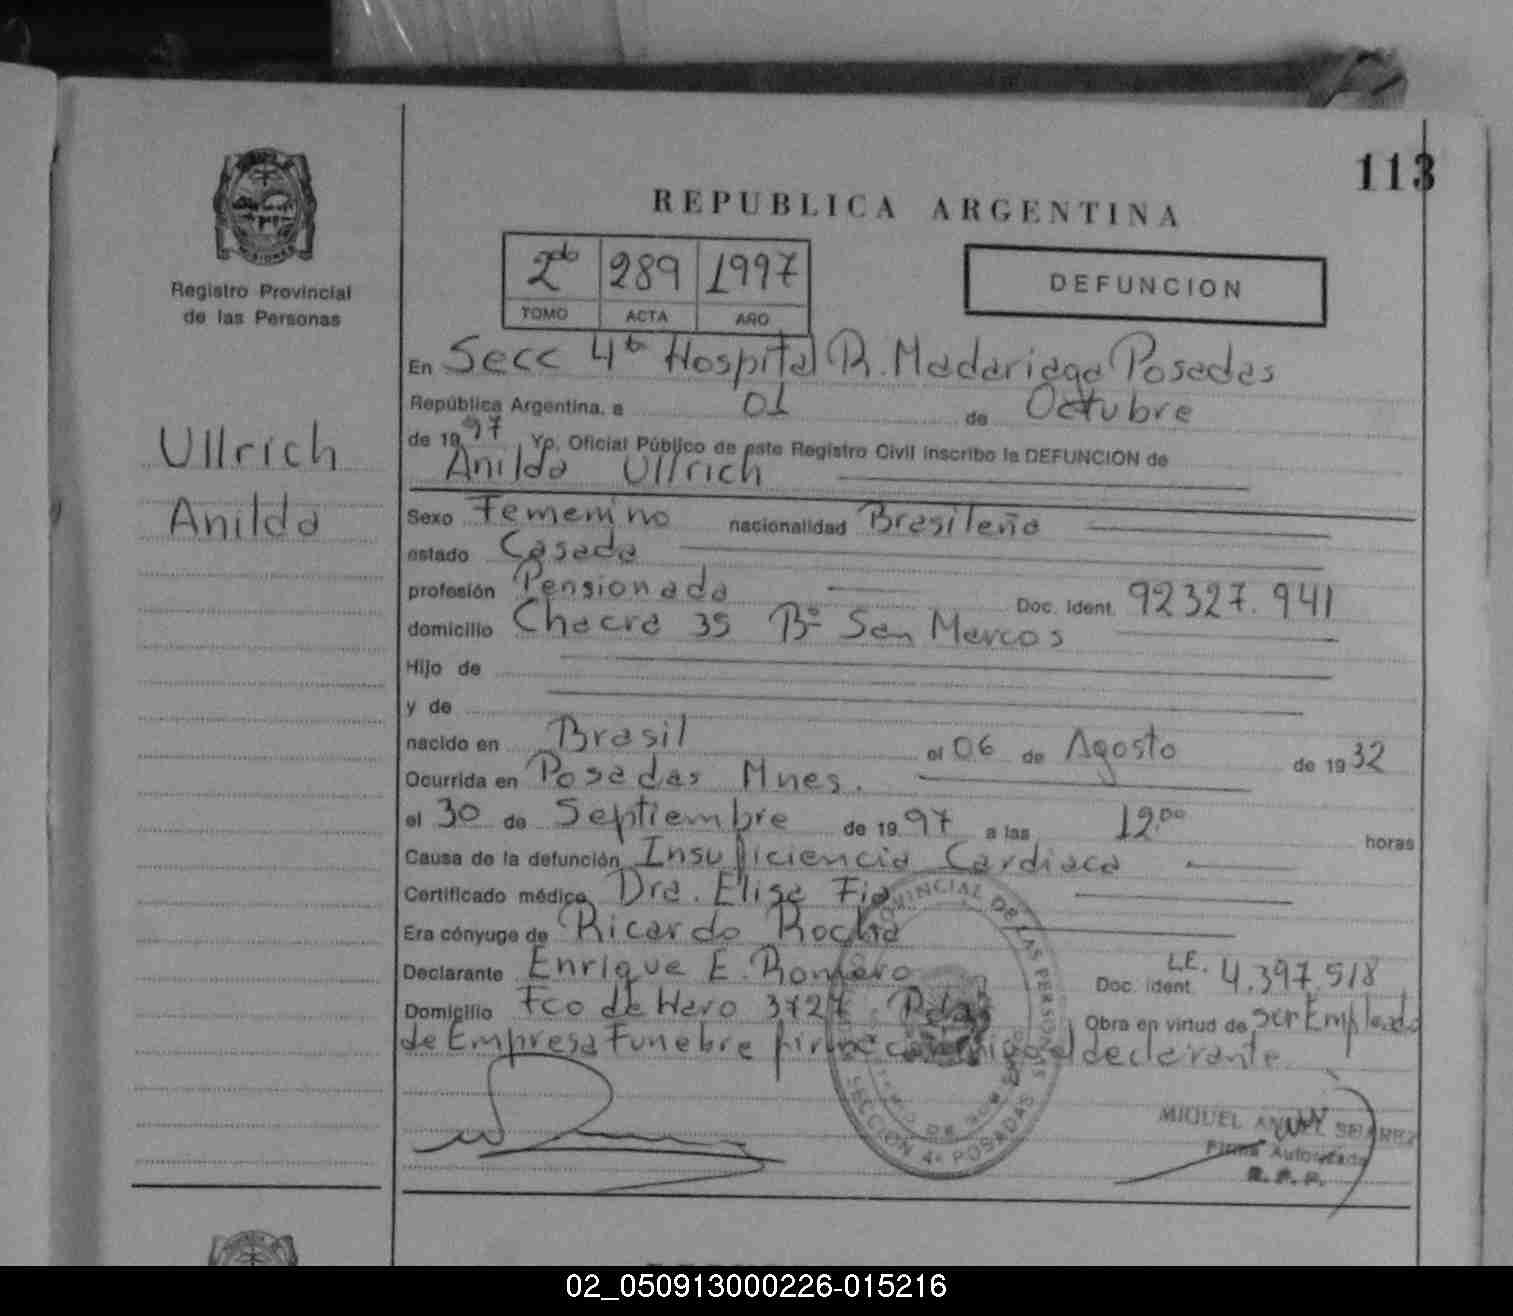 113
REPUBLICA ARGENTINA
Registro Provincial
de las Personas
2do 289 1997
TOMO ACTA AÑO
DEFUNCION
Ullrich
Anilda
En Secc 4ta Hospital R. Madariaga Posadas
República Argentina, a 01 de Octubre
de 1997 Yo, Oficial Público de este Registro Civil inscribo la DEFUNCION de
Anilda Ullrich
Sexo Femenino nacionalidad Brasileña
estado Casada
profesión Pensionada Doc. Ident. 92327.941
domicilio Chacra 35 Bº San Marcos
Hijo de
y de
nacido en Brasil el 06 de Agosto de 1932
Ocurrida en Posadas Mnes.
el 30 de Septiembre de 1997 a las 12,00 horas
Causa de la defunción Insuficiencia Cardiaca
Certificado médico Dra. Elisa Fia
Era cónyuge de Ricardo Rocha
Declarante Enrique E. Romero Doc. Ident. LE. 4.397.518
Domicilio Fco de Haro 3727 Pdas Obra en virtud de ser Empleado
de Empresa Funebre firma conmigo el declarante
PROVINCIAL DE LAS PERSONAS
SECCION 4ª POSADAS
MIGUEL ANGEL SUAREZ
Firma Autorizada
R. P. P.
02_050913000226-015216